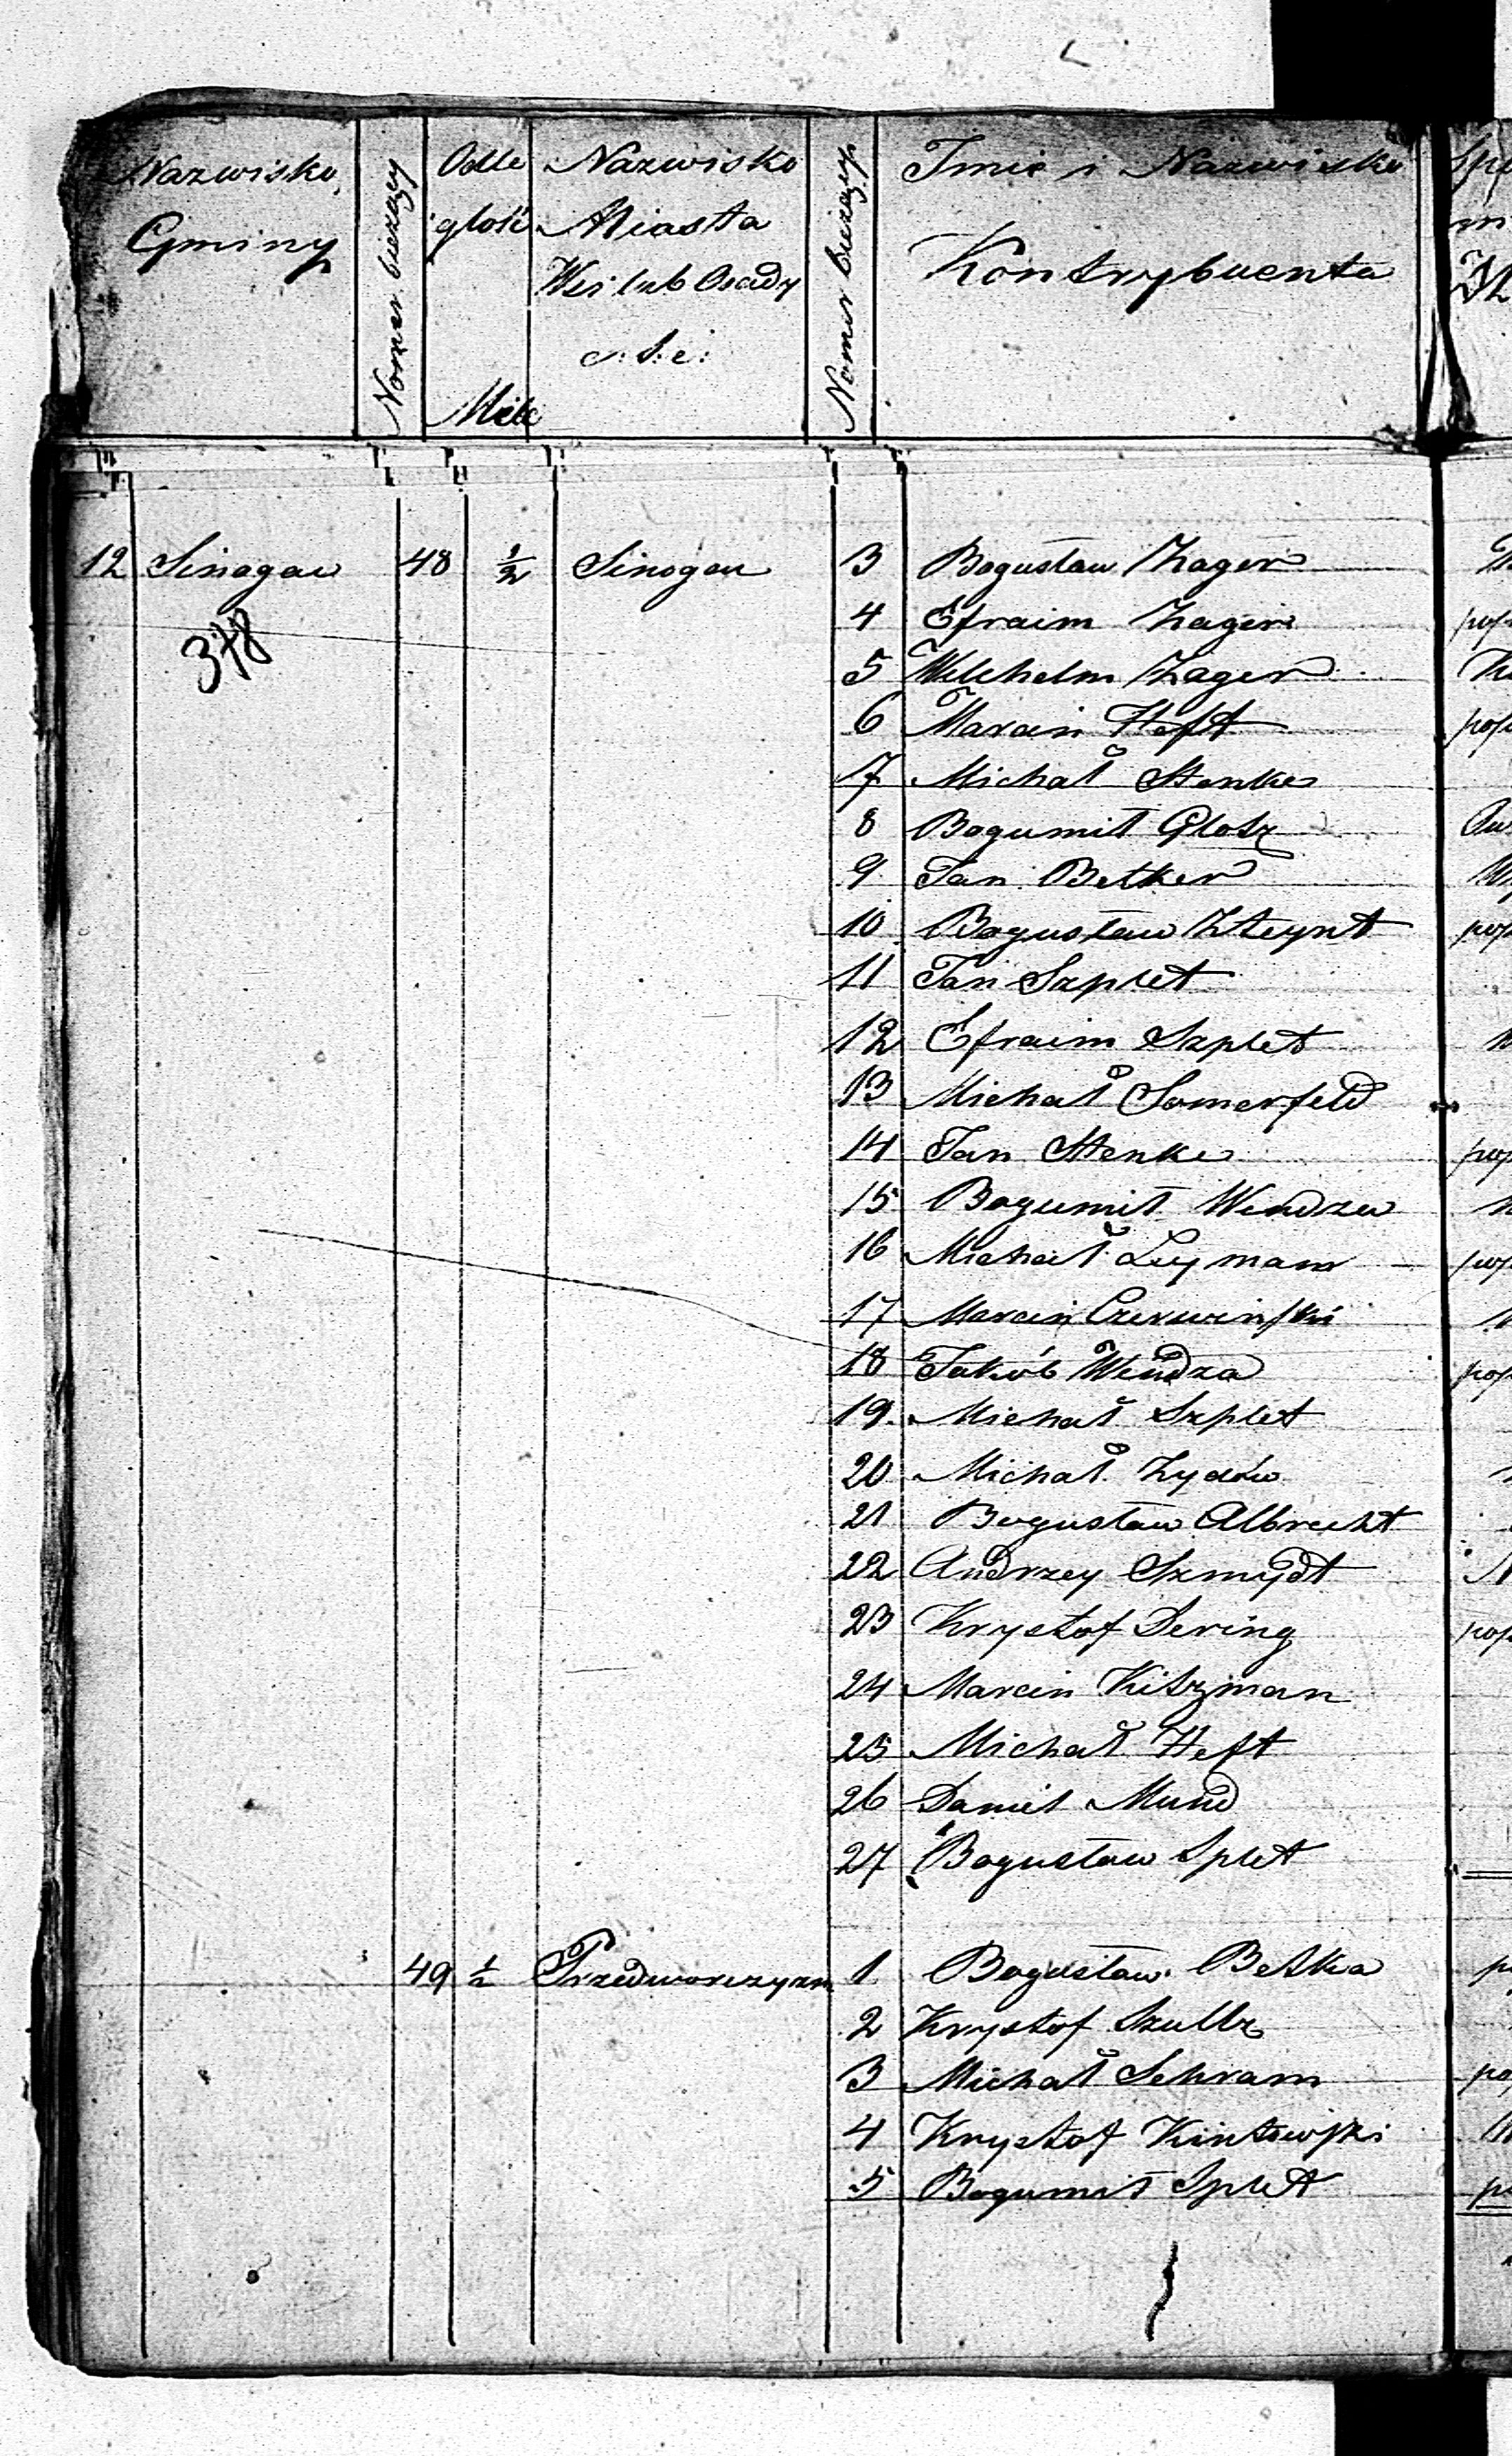 Nazwisko Gminy
Nomer bieżący
Odle głość Mile
Nazwisko Miasta Wsi lub Osady
Nomer bieżący
Imie i Nazwisko Kontrybuenta
12 Sinogau 48 1/2 Sinogau 3 Bogusław Zager
378
4 Efraim Zager
5 Wilhelm Zager
6 Marcin Heft
7 Michał Henke
8 Bogumił Glotz
9 Jan Betker
10 Bogusław
11 Jan Szplet
12 Efraim Szplet
13 Michał Somerfeld
14 Jan Henke
15 Bogumił Wendza
16 Michał Leymann
17 Marcin Czerwinski
18 Jakób Wendza
19. Michał Szplet
20 Michał
21 Bogusław Albrecht
22 Andrzey Szmydt
23 Krysztof Dering
24 Marcin Kitzman
25 Michał Heft
26 Daniel Mund
27 Bogusław Splet
49 1/2 Przedworczyzn 1 Bogusław Betka
2 Krysztof Szultz
3 Michał Schram
4 Krysztof
5 Bogumił Splet